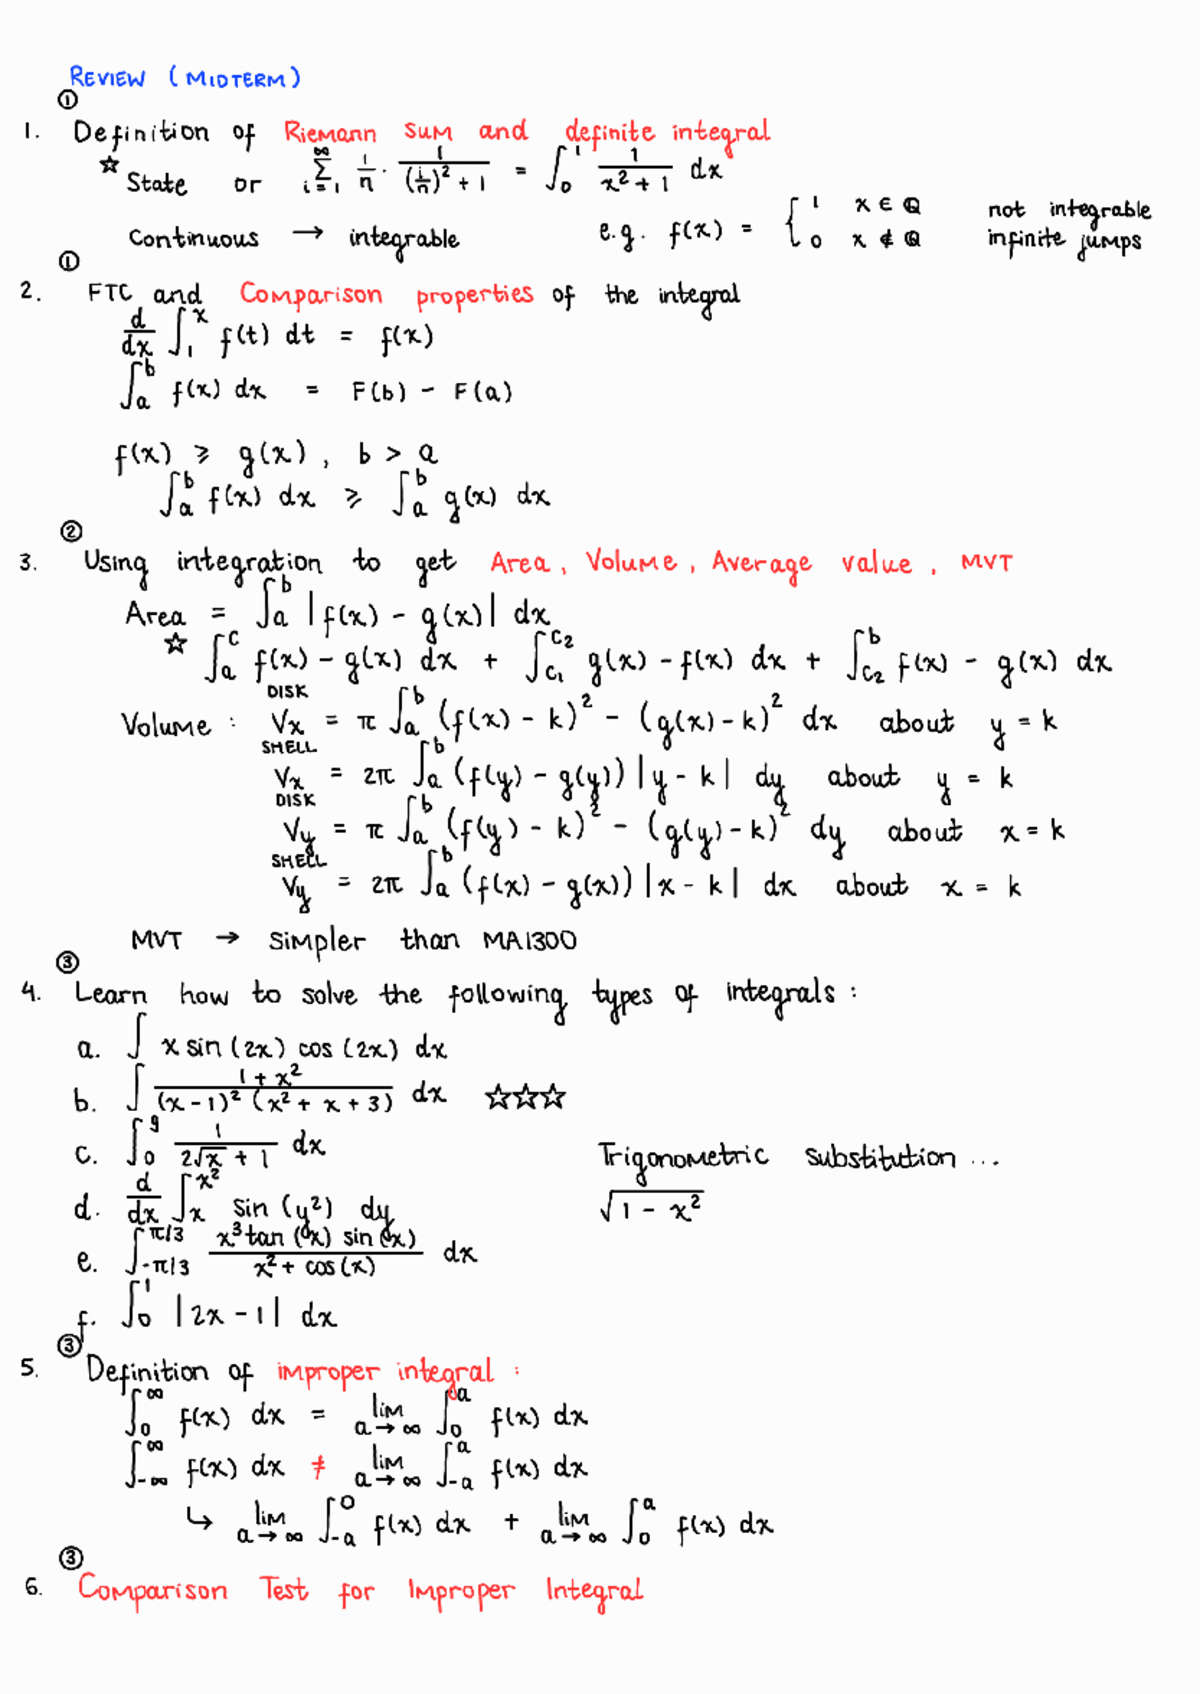 REVIEW (MIDTERM)
①
1. Definition of Riemann sum and definite integral
☆ State or ∑_{i=1}^{∞} 1/n · 1/((i/n)² + 1) = ∫₀¹ 1/(x² + 1) dx
continuous → integrable e.g. f(x) = { 1 x ∈ ℚ not integrable
0 x ∉ ℚ infinite jumps
①
2. FTC and Comparison properties of the integral
d/dx ∫₁ˣ f(t) dt = f(x)
∫ₐᵇ f(x) dx = F(b) - F(a)
f(x) ⩾ g(x), b > a
∫ₐᵇ f(x) dx ⩾ ∫ₐᵇ g(x) dx
②
3. Using integration to get Area, Volume, Average value, MVT
Area = ∫ₐᵇ |f(x) - g(x)| dx
☆ ∫ₐᶜ f(x) - g(x) dx + ∫_{c₁}^{c₂} g(x) - f(x) dx + ∫_{c₂}^{b} f(x) - g(x) dx
DISK
Volume: Vx = π ∫ₐᵇ (f(x) - k)² - (g(x) - k)² dx about y = k
SHELL
Vx = 2π ∫ₐᵇ (f(y) - g(y)) |y - k| dy about y = k
DISK
Vy = π ∫ₐᵇ (f(y) - k)² - (g(y) - k)² dy about x = k
SHELL
Vy = 2π ∫ₐᵇ (f(x) - g(x)) |x - k| dx about x = k
MVT → simpler than MA1300
③
4. Learn how to solve the following types of integrals:
a. ∫ x sin(2x) cos(2x) dx
b. ∫ (1 + x²)/((x - 1)² (x² + x + 3)) dx ☆☆☆
c. ∫₀⁹ 1/(2√x + 1) dx Trigonometric substitution ...
d. d/dx ∫ₓ^{x²} sin(y²) dy √(1 - x²)
e. ∫_{-π/3}^{π/3} x³tan(x) sin(x)/(x² + cos(x)) dx
f. ∫₀¹ |2x - 1| dx
③
5. Definition of improper integral:
∫₀^∞ f(x) dx = lim_{a→∞} ∫₀ᵃ f(x) dx
∫_{-∞}^{∞} f(x) dx ≠ lim_{a→∞} ∫_{-a}^{a} f(x) dx
↳ lim_{a→∞} ∫_{-a}^{0} f(x) dx + lim_{a→∞} ∫₀ᵃ f(x) dx
③
6. Comparison Test for Improper Integral